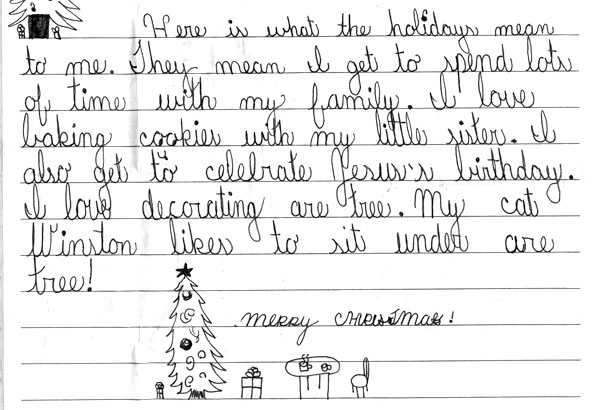 Here is what the holidays mean
to me. They mean I get to spend lots
of time with my family. I love
baking cookies with my little sister. I
also get to celebrate Jesus's birthday.
I love decorating are tree. My cat
Winston likes to sit under are
tree!
merry christmas!